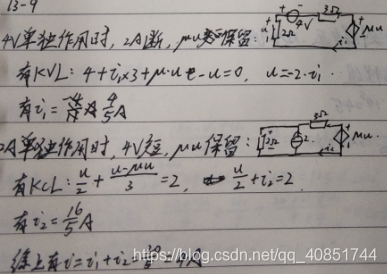 13-9
4V单独作用时,2A断,μu保留:
有KVL: 4+i₁×3+μ·u-u=0, u=-2·i₁.
有i₁= 4/5 A
2A单独作用时,4V短,μu保留:
有KCL: u/2 + (u-μu)/3 = 2, u/2+i₂=2.
有i₂= 16/5 A
综上有i=i₁+i₂= =4A
+ - 4V 3Ω + u 2Ω - i₁ μu
3Ω 2Ω i₂ μu
https://blog.csdn.net/qq_40851744